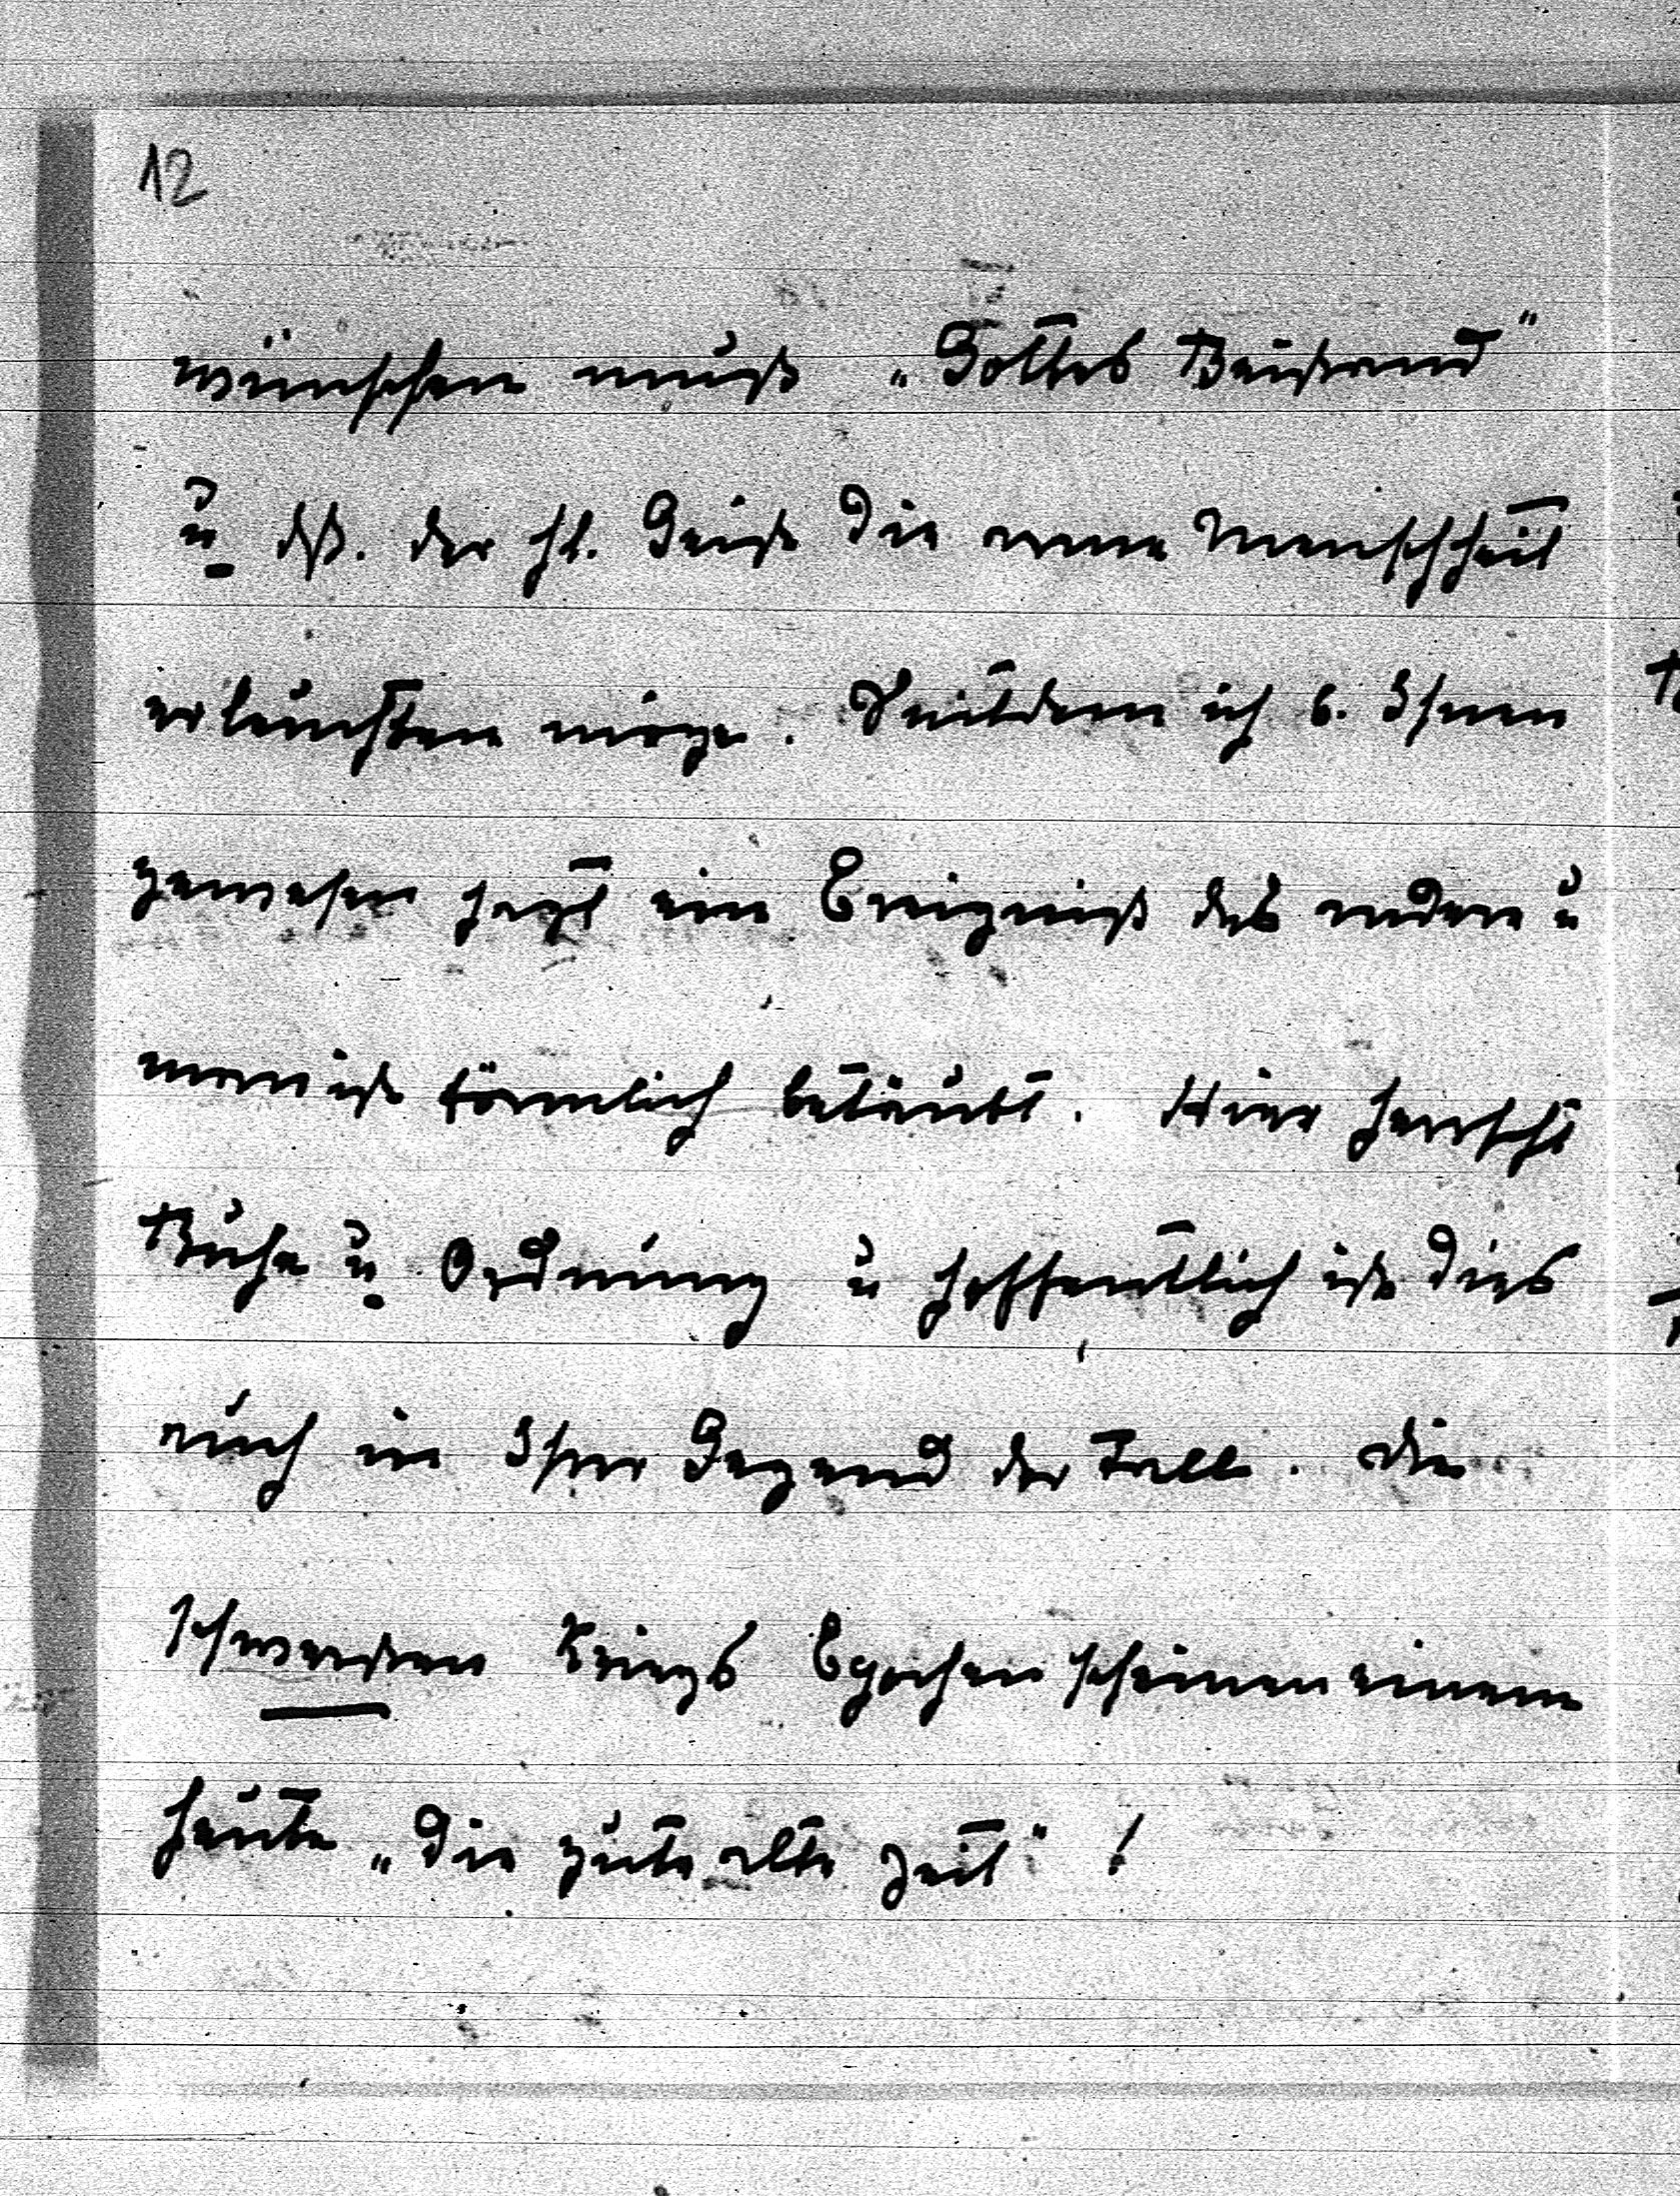 12
wünschen muß „Gottes Beistand"
u. dß. der hl. Geist die arme Menschheit
erleuchten möge. Seitdem ich b. Ihnen
gewesen jagt ein Ereigniß das andere u
man ist förmlich betäubt. Hier herrscht
Ruhe u. Ordnung u hoffentlich ist dies
auch in Ihrer Gegend der Fall. Die
schwersten Kriegs Epochen scheinen einem
heute „die gute alte Zeit" !